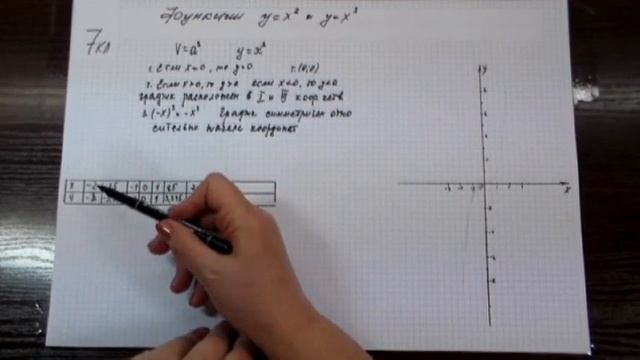 Функции y=x² и y=x³
7кл
V=a³ y=x³
1. Если x=0, то y=0 т.(0;0)
2. Если x>0, то y>0 если x<0, то y<0
график расположен в I и III коор. четв
3. (-x)³=-x³ График симметричен отно
сительно начала координат
y
x
x -2 -1 0 1 1,5 2
y -8 0 1 3,375